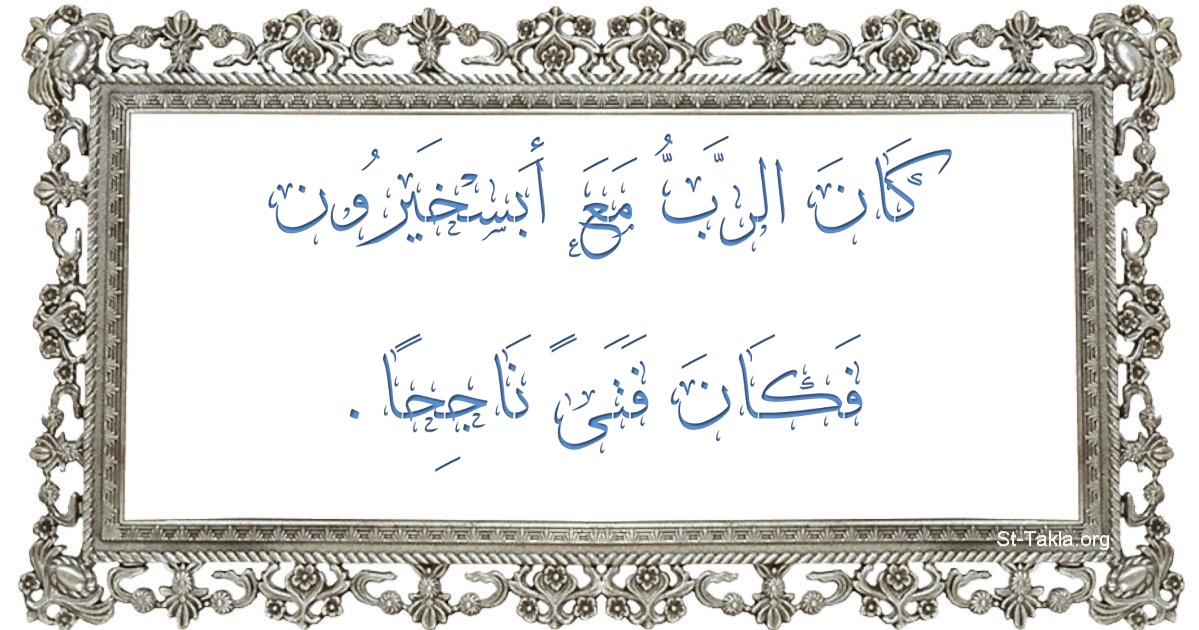 كَانَ الرَّبُّ مَعَ أَبسْخَيرُون
فَكَانَ فَتَىً نَاجِحًا .
St-Takla.org